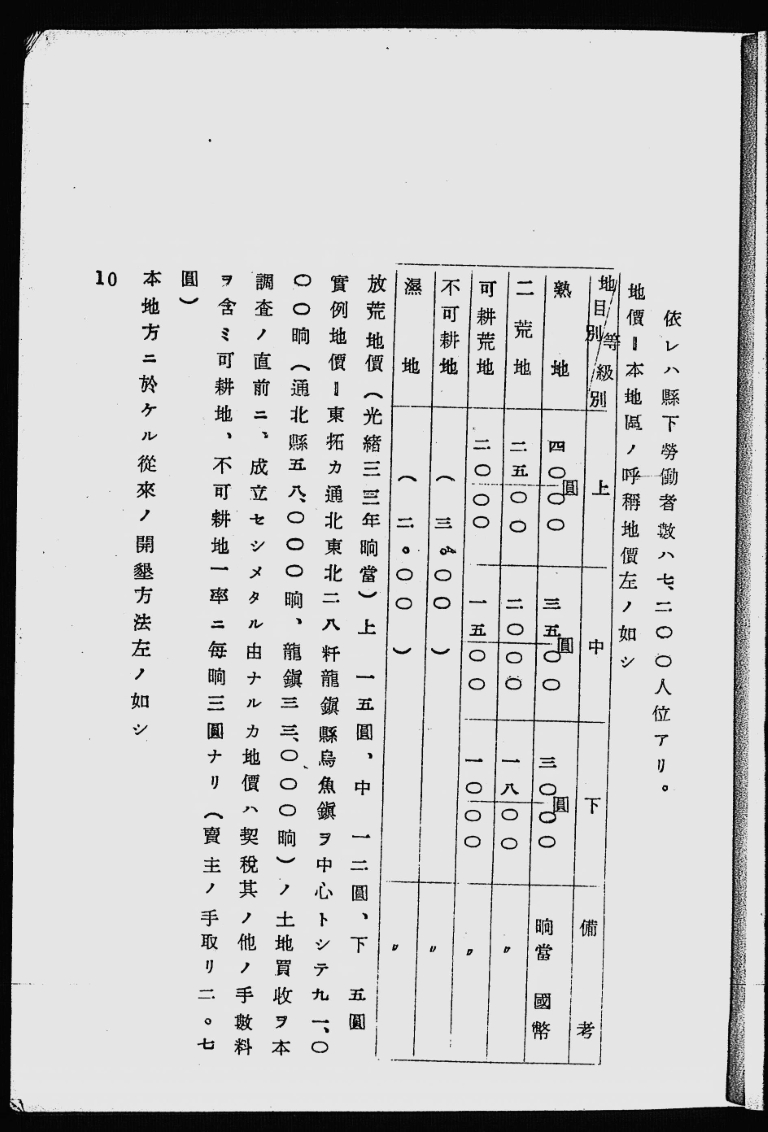 依レハ縣下勞働者數ハ七、二〇〇人位アリ。
地價〓本地區ノ呼稱地價左ノ如シ
地目別／等級別　上　中　下　備考
熟地　四〇〇〇圓　三五〇〇圓　三〇〇〇圓　晌當國幣
二荒地　二五〇〇　二〇〇〇　一八〇〇　〃
可耕荒地　二〇〇〇　一五〇〇　一〇〇〇　〃
不可耕地　（三。〇〇）　〃
濕地　（二。〇〇）　〃
放荒地價（光緒三三年晌當）上　一五圓、中　一二圓、下　五圓
實例地價〓東拓カ通北東北二八粁龍鎭縣烏魚鎭ヲ中心トシテ九一、〇
〇〇晌（通北縣五八、〇〇〇晌、龍鎭三三、〇〇〇晌）ノ土地買收ヲ本
調査ノ直前ニ、成立セシメタル由ナルカ地價ハ契税其ノ他ノ手數料
ヲ含ミ可耕地、不可耕地一率ニ毎晌三圓ナリ（賣主ノ手取リ二。七
圓）
10
本地方ニ於ケル從來ノ開墾方法左ノ如シ